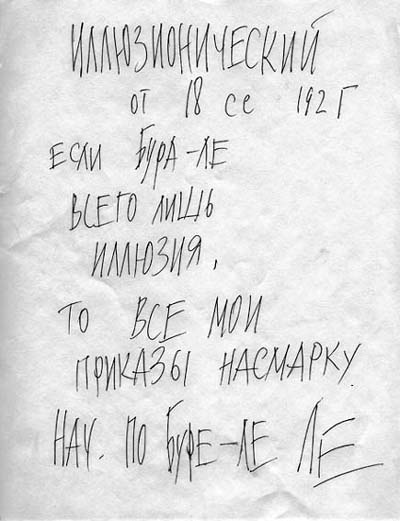 ИЛЛЮЗИОНИЧЕСКИЙ
от 18 се 192 Г
ЕСЛИ БУРА-ЛЕ
ВСЕГО ЛИШЬ
ИЛЛЮЗИЯ,
ТО ВСЕ МОИ
ПРИКАЗЫ НАСМАРКУ.
НАЧ. ПО БУРЕ-ЛЕ ЛЕ